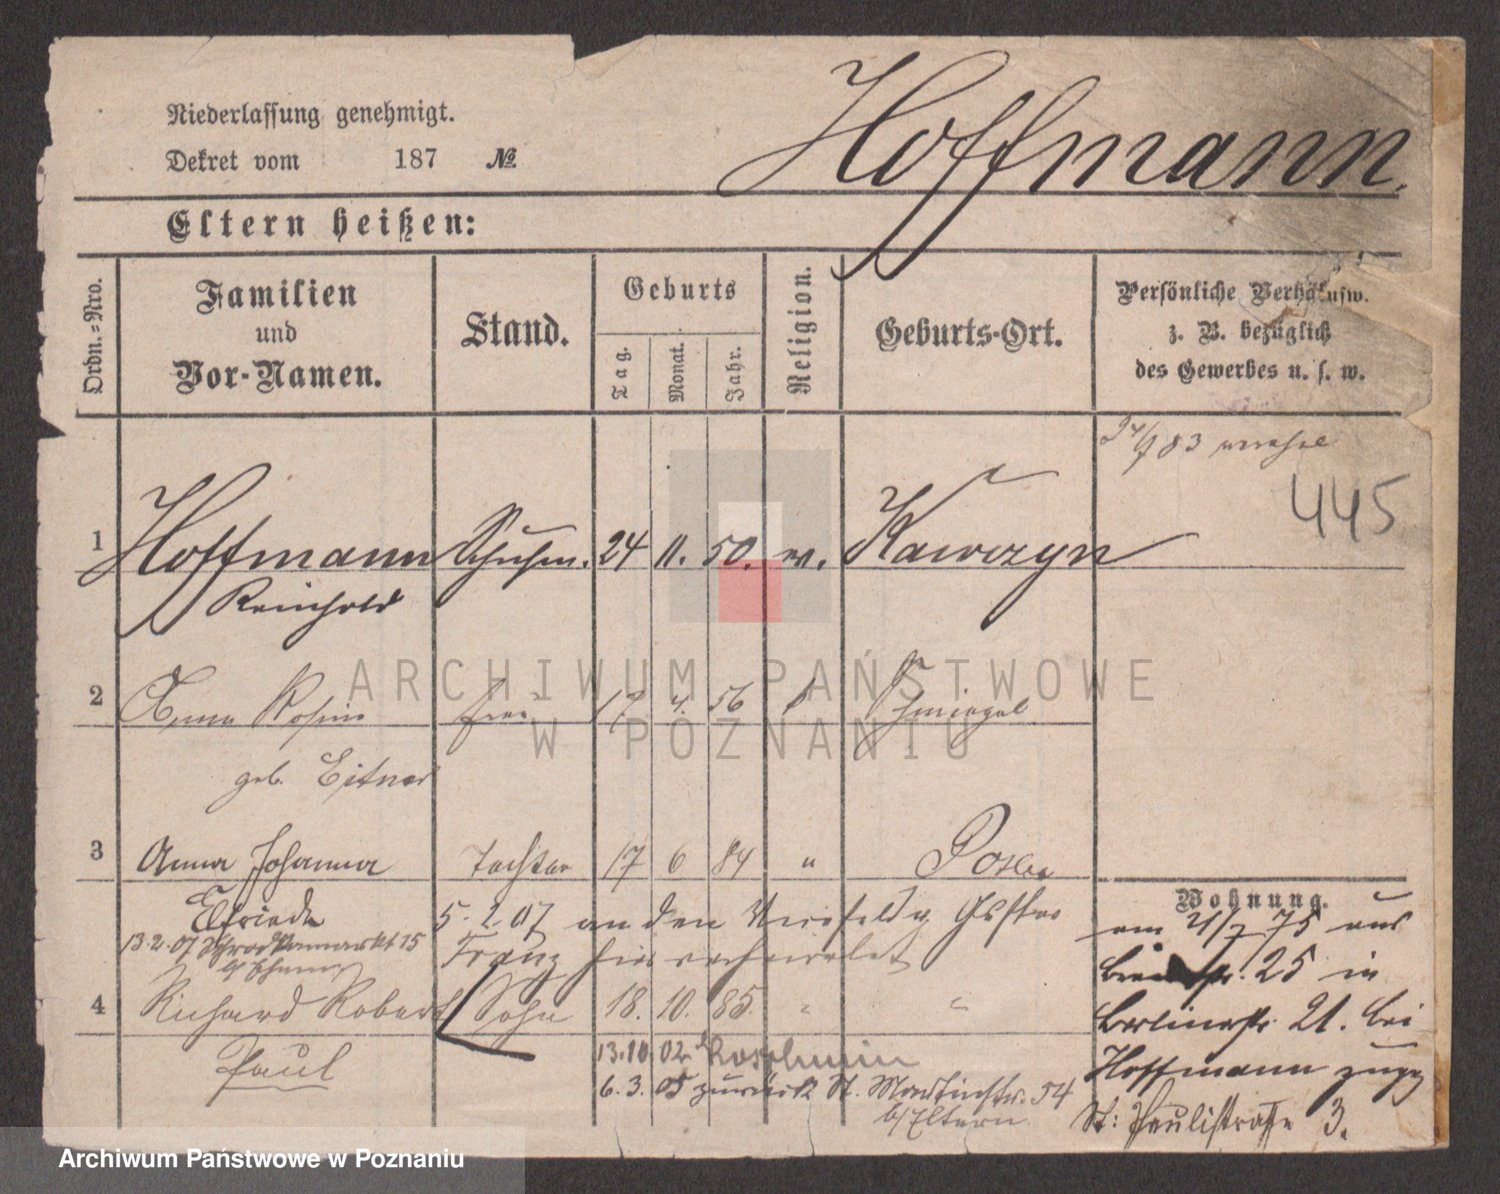 Niederlassung genehmigt.
Dekret vom 187 №
Hoffmann.
Eltern heißen:
Ordn.=Nro.
Familien
und
Vor-Namen.
Stand.
Geburts
Tag.
Monat.
Jahr.
Religion.
Geburts-Ort.
Persönliche Verhältnisse.
z. B. bezüglich
des Gewerbes u. s. w.
445
1 Hoffmann Schuhm. 24 11. 50. ev. Kawczyn
Reinhold
2 Anna Rosine Frau 17 4. 56 Schmiegel
geb. Eitner
3 Anna Johanna Tochter 17 6 84 " Posen
Elfriede 5. 2. 07 an den
13.2.07 15
Franz hier verheiratet
4 Richard Robert Sohn 18. 10. 85. " "
Paul
13.10.02 Koschmin
6.3.05 zurück St. Martinstr. 54
b/Eltern
Wohnung.
am 21/7 75 aus
25 in
Berlinerstr. 21. bei
Hoffmann zugz
St: Paulistrasse 3.
ARCHIWUM PAŃSTWOWE
W POZNANIU
Archiwum Państwowe w Poznaniu